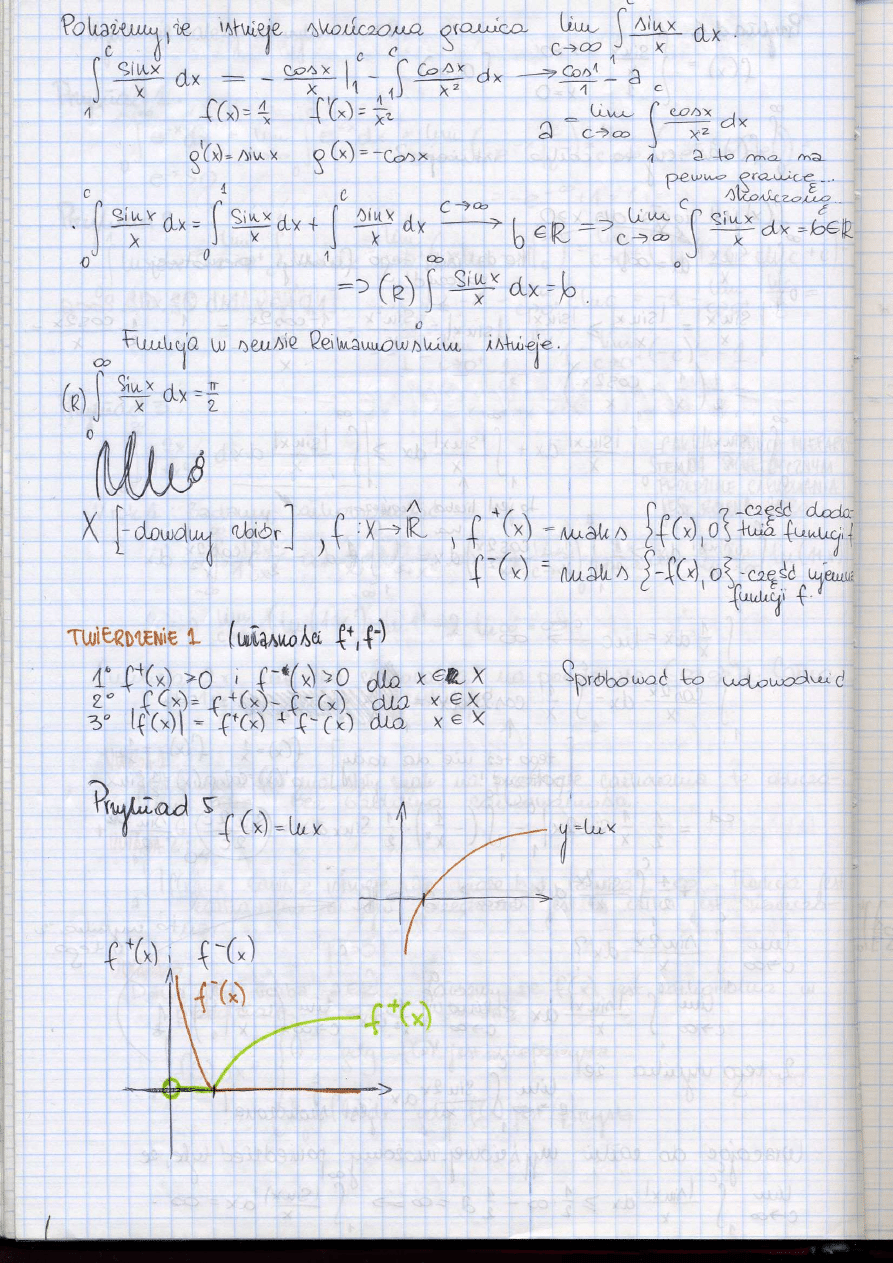 Pokażemy, że istnieje skończona granica lim c→∞ ∫₁ᶜ sinx/x dx.
∫₁ᶜ sinx/x dx = -cosx/x |₁ᶜ - ∫₁ᶜ cosx/x² dx → cos1/1 - a
f(x)=1/x f'(x)=1/x² a = lim c→∞ ∫₁ᶜ cosx/x² dx
g'(x)=sinx g(x)=-cosx a to ma na
pewno granicę...
skończoną
· ∫₀ᶜ sinx/x dx = ∫₀¹ sinx/x dx + ∫₁ᶜ sinx/x dx c→∞ → b∈ℝ => lim c→∞ ∫₀ᶜ sinx/x dx = b∈ℝ
=> (R) ∫₀^∞ sinx/x dx = b.
Funkcja w sensie Reimannowskim istnieje.
(R) ∫₀^∞ sinx/x dx = π/2
X [-dowolny zbiór], f: X→ℝ̂, f⁺(x) = maks {f(x), 0} -część doda-
tnia funkcji f
f⁻(x) = maks {-f(x), 0} -część ujemna
funkcji f.
TWIERDZENIE 1 (własności f⁺, f⁻)
1° f⁺(x) ≥0 i f⁻(x) ≥0 dla x∈ X Spróbować to udowodnić
2° f(x) = f⁺(x) - f⁻(x) dla x∈X
3° |f(x)| = f⁺(x) + f⁻(x) dla x∈X
Przykład 5
f(x)=lnx y=lnx
f⁺(x) i f⁻(x)
f⁻(x)
f⁺(x)